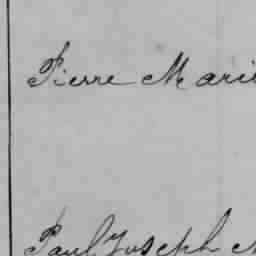 Pierre Marie
Paul Joseph